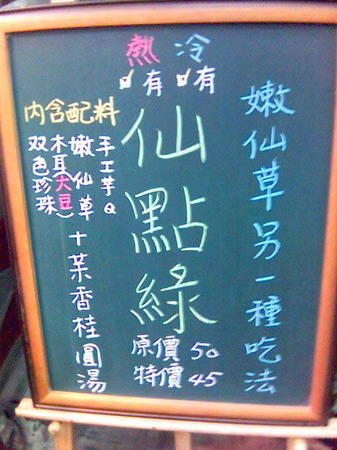 熱 冷
有 有
嫩仙草另一種吃法
仙點綠
原價50
特價45
內含配料
手工芋Q
嫩仙草十茶香桂圓湯
木耳(大豆)
双色珍珠